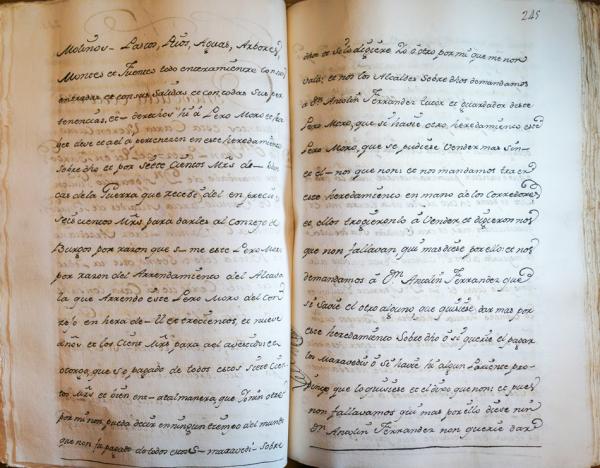 Molinos – Pastos, Rios, Aguas, Arbores,
Montes et Fuentes todo enteramientre con sus
entradas et con sus Salidas et con todas sus per
tenencias, et – derechos hi á Pero Moro et ha
ger deve et a el a pertenescen en este heredamiento
Sobredho et por sette Cientos Mrs de –
cas de la Guerra que recebí del en precio
seiscientos Mrs para darles al Conzejo de
Burgos por razon que este Pero Moro
por razon del Arrendamiento del Alcava
la que Arrendo este Pero Moro del Con
en hera de – et trecientos, et nueve
años et los Cient Mrs para
otorgo, que so pagado de todos estos Siete Cien
tos Mrs et bien en – atal manera, que
por mi non pueda decir en ningun tiempo del mundo
que non fui pagado de todos estos – maravedis – Sobre
245
dhos et Si lo digiere Yo ó otro por mi que me non
vala; et nos los Alcaldes Sobre dhos demandamos
á Dn Antolin Ferrandez tutor et guardador deste
Pero Moro, que si havie otro heredamiento este
Pero Moro, que se pudiese vender mas sin–
et – nos que non; et nos mandamos traer
este heredamiento en mano de los Corredores
et ellos trogieronlo á Vender et digieron nos
que non fallavan qui mas diese por ello: et nos
demandamos á Dn Antolin Ferrandez que
si Savie el otro alguno que quisiese dar mas por
este heredamiento Sobre dho ó si querie el pagar
los Maravedis ó si havie hi algun Pariente pro–
pinqo que lo quisiese et el dixo que non; et pues
non fallavamos qui mas por ello diese nin
Dn Antolin Ferrandez non querie dar